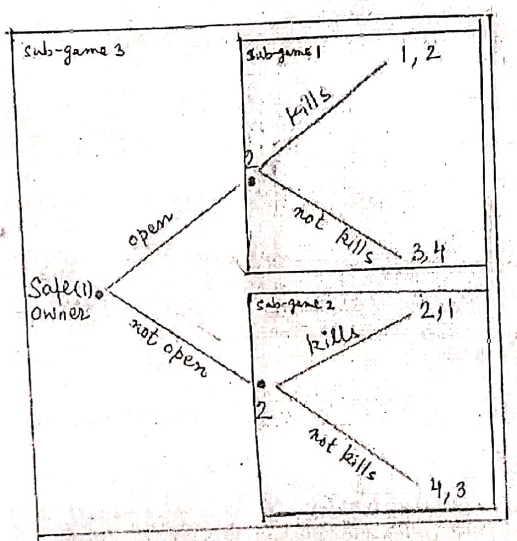 sub-game 3
sub-game 1
1, 2
kills
2
not kills
3, 4
open
Safe(1)
owner
not open
sub-game 2
2, 1
kills
2
not kills
4, 3